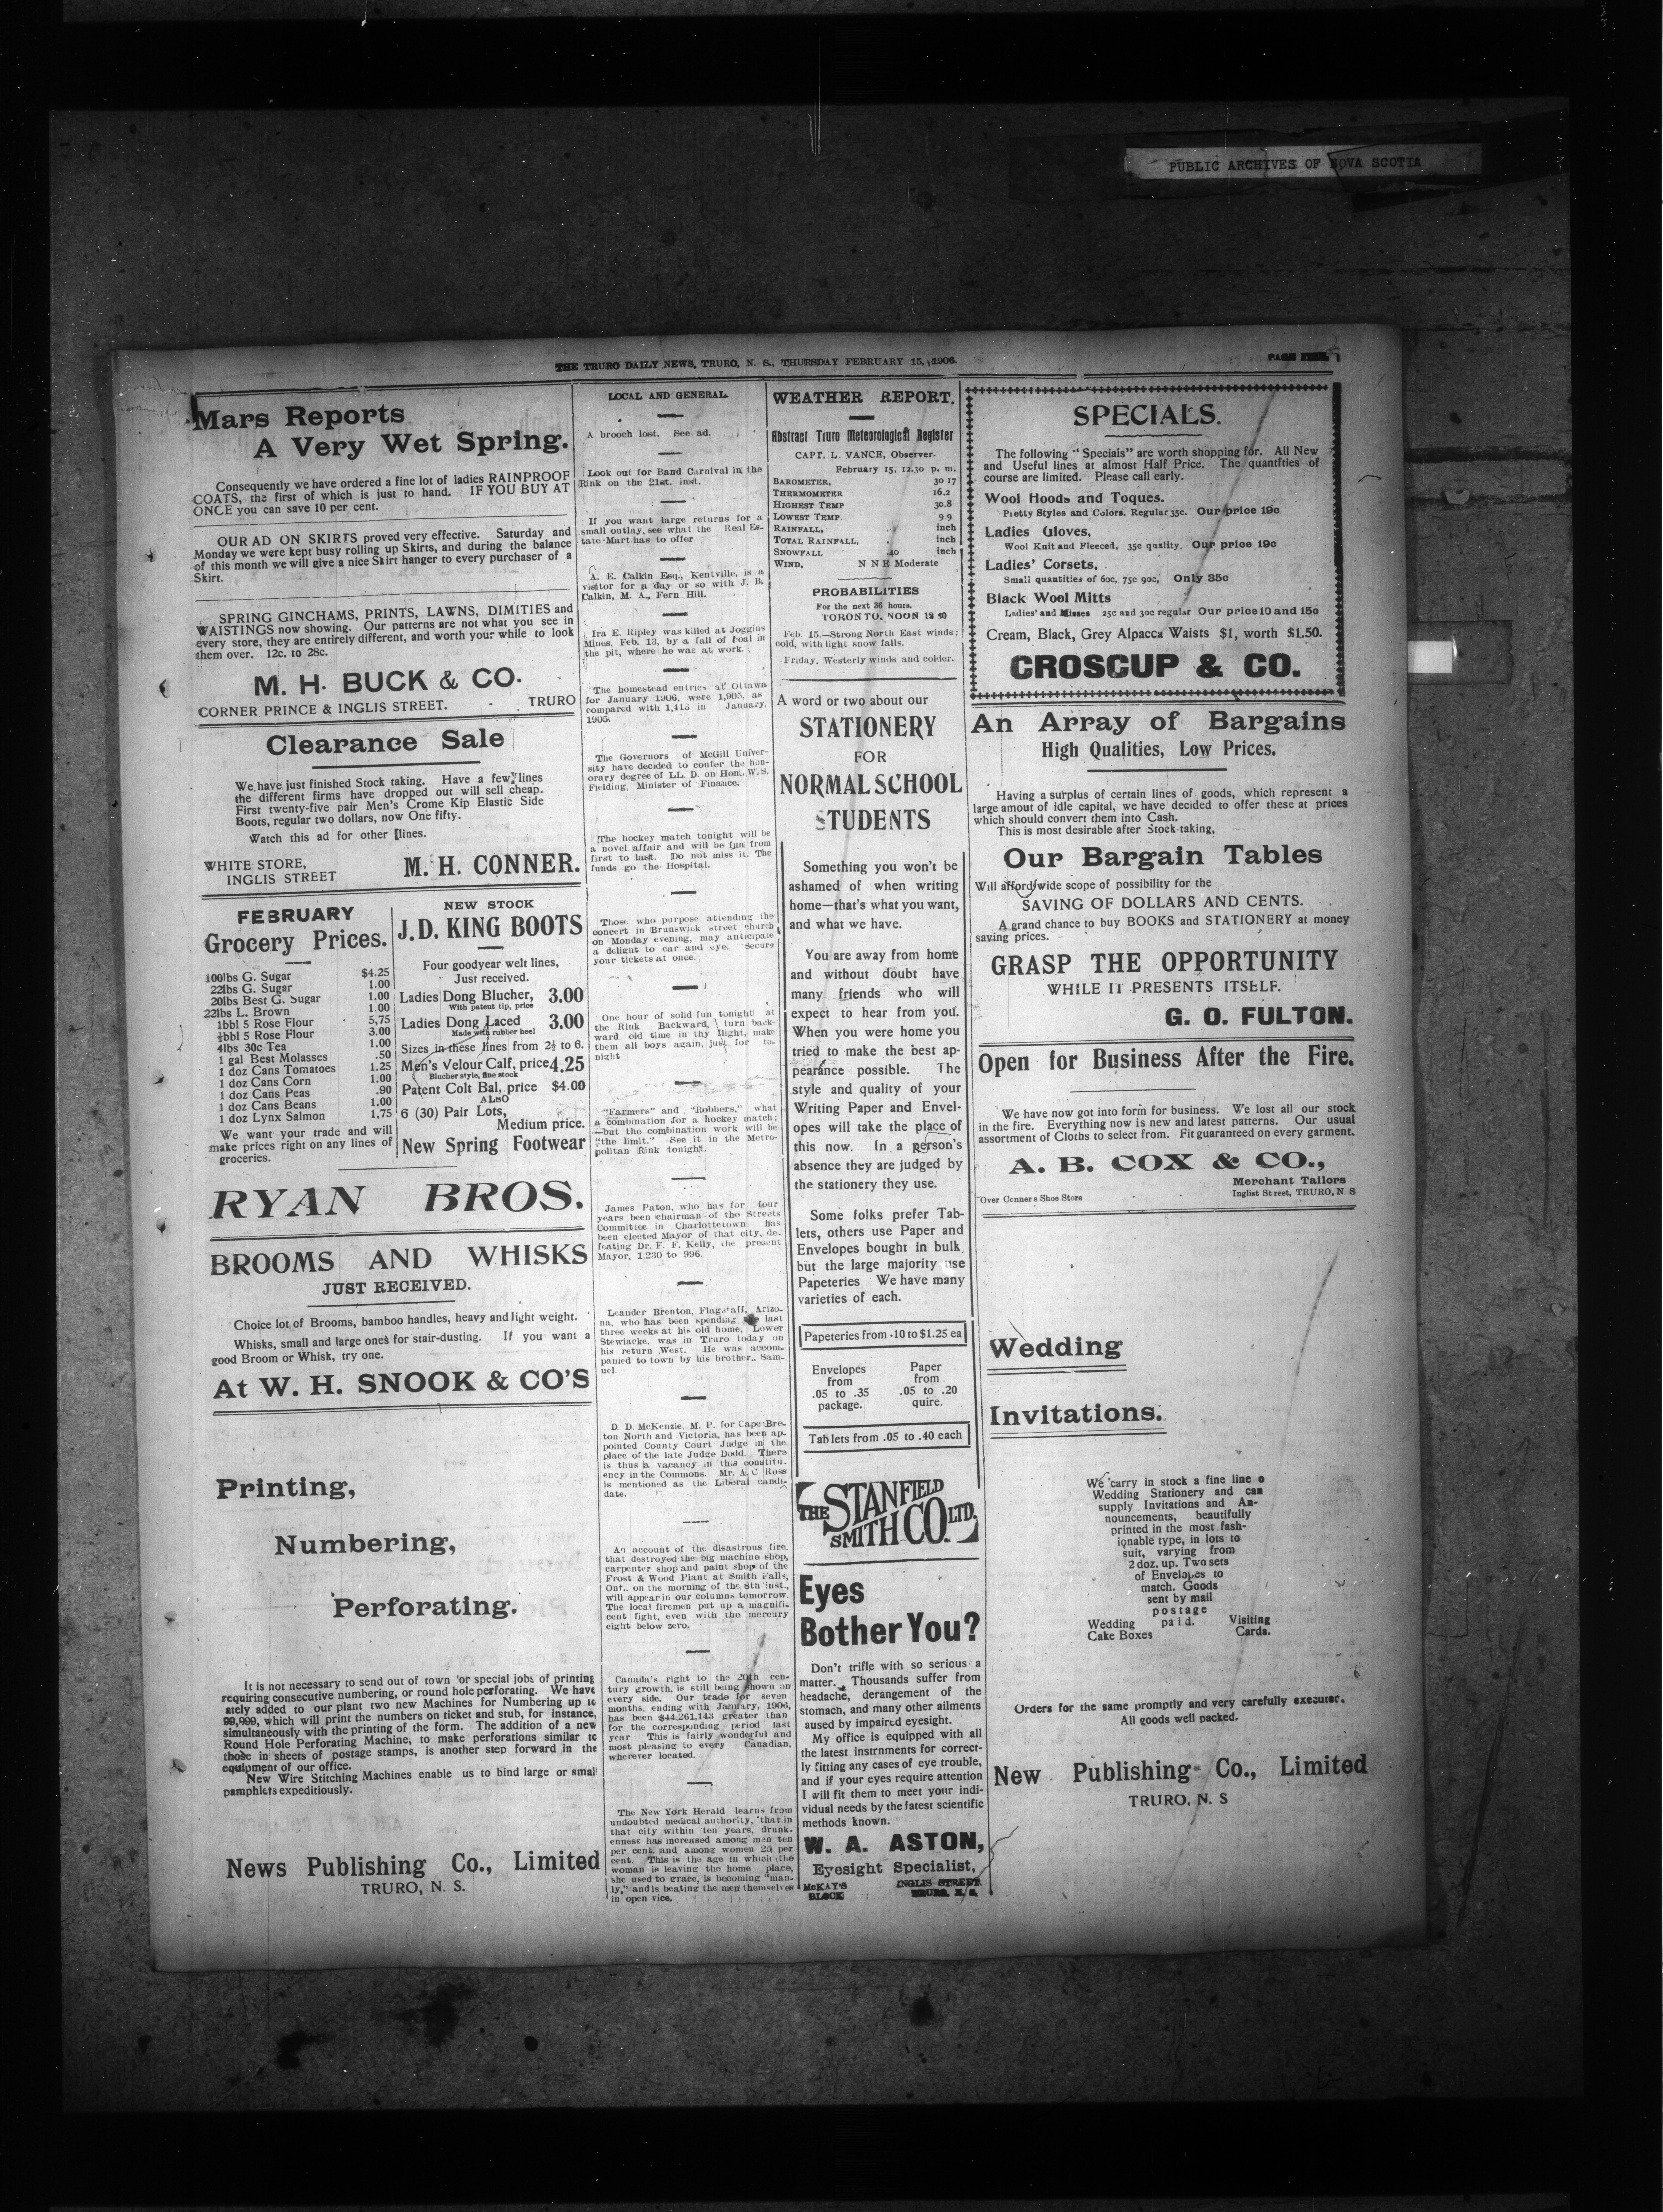 PUBLIC ARCHIVES OF NOVA SCOTIA
THE TRURO DAILY NEWS, TRURO, N. S., THURSDAY FEBRUARY 15, 1906.
Mars Reports
A Very Wet Spring.
Consequently we have ordered a fine lot of ladies RAINPROOF
COATS, the first of which is just to hand. IF YOU BUY AT
ONCE you can save 10 per cent.
OUR AD ON SKIRTS proved very effective. Saturday and
Monday we were kept busy rolling up Skirts, and during the balance
of this month we will give a nice Skirt hanger to every purchaser of a
Skirt.
SPRING GINCHAMS, PRINTS, LAWNS, DIMITIES and
WAISTINGS now showing. Our patterns are not what you see in
every store, they are entirely different, and worth your while to look
them over. 12c. to 28c.
M. H. BUCK & CO.
CORNER PRINCE & INGLIS STREET. - TRURO
Clearance Sale
We have just finished Stock taking. Have a few lines
the different firms have dropped out will sell cheap.
First twenty-five pair Men's Crome Kip Elastic Side
Boots, regular two dollars, now One fifty.
Watch this ad for other lines.
WHITE STORE,
INGLIS STREET
M. H. CONNER.
FEBRUARY
Grocery Prices.
100lbs G. Sugar $4.25
22lbs G. Sugar 1.00
20lbs Best G. Sugar 1.00
22lbs L. Brown 1.00
1bbl 5 Rose Flour 5,75
½bbl 5 Rose Flour 3.00
4lbs 30c Tea 1.00
1 gal Best Molasses .50
1 doz Cans Tomatoes 1.25
1 doz Cans Corn 1.00
1 doz Cans Peas .90
1 doz Cans Beans 1.00
1 doz Lynx Salmon 1,75
We want your trade and will
make prices right on any lines of
groceries.
NEW STOCK
J.D. KING BOOTS
Four goodyear welt lines,
Just received.
Ladies Dong Blucher, 3.00
With patent tip, price
Ladies Dong Laced 3.00
Made with rubber heel
Sizes in these lines from 2½ to 6.
Men's Velour Calf, price 4.25
Blucher style, fine stock
Patent Colt Bal, price $4.00
ALSO
6 (30) Pair Lots,
Medium price.
New Spring Footwear
RYAN BROS.
BROOMS AND WHISKS
JUST RECEIVED.
Choice lot of Brooms, bamboo handles, heavy and light weight.
Whisks, small and large ones for stair-dusting. If you want a
good Broom or Whisk, try one.
At W. H. SNOOK & CO'S
Printing,
Numbering,
Perforating.
It is not necessary to send out of town 'or special jobs of printing
requiring consecutive numbering, or round hole perforating. We have
ately added to our plant two new Machines for Numbering up to
99,999, which will print the numbers on ticket and stub, for instance,
simultaneously with the printing of the form. The addition of a new
Round Hole Perforating Machine, to make perforations similar to
those in sheets of postage stamps, is another step forward in the
equipment of our office.
New Wire Stitching Machines enable us to bind large or smal
pamphlets expeditiously.
News Publishing Co., Limited
TRURO, N. S.
LOCAL AND GENERAL.
A brooch lost. See ad.
Look out for Band Carnival in the
Rink on the 21st. inst.
If you want large returns for a
small outlay, see what the Real Es-
tate Mart has to offer
A. E. Calkin Esq., Kentville, is a
visitor for a day or so with J. B.
Calkin, M. A., Fern Hill.
Ira E. Ripley was killed at Joggins
Mines, Feb. 13, by a fall of coal in
the pit, where he was at work.
The homestead entries at Ottawa
for January 1906, were 1,905, as
compared with 1,413 in January,
1905.
The Governors of McGill Univer-
sity have decided to confer the hon-
orary degree of LL. D. on Hon. W. S.
Fielding, Minister of Finance.
The hockey match tonight will be
a novel affair and will be fun from
first to last. Do not miss it. The
funds go the Hospital.
Those who purpose attending the
concert in Brunswick street church
on Monday evening, may anticipate
a delight to ear and eye. Secure
your tickets at once.
One hour of solid fun tonight at
the Rink Backward, turn back-
ward old time in thy flight, make
them all boys again, just for to-
night
"Farmers" and "Robbers," what
a combination for a hockey match;
—but the combination work will be
"the limit." See it in the Metro-
politan Rink tonight.
James Paton, who has for four
years been chairman of the Streets
Committee in Charlottetown has
been elected Mayor of that city, de-
feating Dr. F. F. Kelly, the present
Mayor, 1,230 to 996.
Leander Brenton, Flagstaff, Arizo-
na, who has been spending last
three weeks at his old home, Lower
Stewiacke, was in Truro today on
his return West. He was accom-
panied to town by his brother, Sam-
uel.
D. D. McKenzie, M. P. for Cape Bre-
ton North and Victoria, has been ap-
pointed County Court Judge in the
place of the late Judge Dodd. There
is thus a vacancy in this constitu-
ency in the Commons. Mr. A. C Ross
is mentioned as the Liberal candi-
date.
An account of the disastrous fire,
that destroyed the big machine shop,
carpenter shop and paint shop of the
Frost & Wood Plant at Smith Falls,
Ont., on the morning of the 8th inst.,
will appear in our columns tomorrow.
The local firemen put up a magnifi-
cent fight, even with the mercury
eight below zero.
Canada's right to the 20th cen-
tury growth, is still being shown on
every side. Our trade for seven
months, ending with January, 1906,
has been $44,261,143 greater than
for the corresponding period last
year This is fairly wonderful and
most pleasing to every Canadian,
wherever located.
The New York Herald learns from
undoubted medical authority, 'that in
that city within ten years, drunk-
enness has increased among men ten
per cent. and among women 25 per
cent. This is the age in which the
woman is leaving the home place,
she used to grace, is becoming "man-
ly," and is beating the men themselves
in open vice.
WEATHER REPORT.
Abstract Truro Meteorological Register
CAPT. L. VANCE, Observer.
February 15, 12.30 p. m.
BAROMETER, 30 17
THERMOMETER 16.2
HIGHEST TEMP 30.8
LOWEST TEMP. 9 9
RAINFALL, inch
TOTAL RAINFALL, inch
SNOWFALL .40 inch
WIND, N N E Moderate
PROBABILITIES
For the next 36 hours.
TORONTO, NOON
Feb. 15.—Strong North East winds;
cold, with light snow falls.
Friday, Westerly winds and colder.
A word or two about our
STATIONERY
FOR
NORMAL SCHOOL
STUDENTS
Something you won't be
ashamed of when writing
home—that's what you want,
and what we have.
You are away from home
and without doubt have
many friends who will
expect to hear from you.
When you were home you
tried to make the best ap-
pearance possible. The
style and quality of your
Writing Paper and Envel-
opes will take the place of
this now. In a person's
absence they are judged by
the stationery they use.
Some folks prefer Tab-
lets, others use Paper and
Envelopes bought in bulk,
but the large majority use
Papeteries We have many
varieties of each.
Papeteries from .10 to $1.25 ea
Envelopes
from
.05 to .35
package.
Paper
from
.05 to .20
quire.
Tablets from .05 to .40 each
THE STANFIELD
SMITH CO. LTD.
Eyes
Bother You?
Don't trifle with so serious a
matter. Thousands suffer from
headache, derangement of the
stomach, and many other ailments
aused by impaired eyesight.
My office is equipped with all
the latest instrnments for correct-
ly fitting any cases of eye trouble,
and if your eyes require attention
I will fit them to meet your indi-
vidual needs by the latest scientific
methods known.
W. A. ASTON,
Eyesight Specialist,
McKAY'S
BLOCK
INGLIS STREET
TRURO, N. S.
SPECIALS.
The following "Specials" are worth shopping for. All New
and Useful lines at almost Half Price. The quantities of
course are limited. Please call early.
Wool Hoods and Toques.
Pretty Styles and Colors. Regular 35c. Our price 19c
Ladies Gloves,
Wool Knit and Fleeced, 35c quality. Our price 19c
Ladies' Corsets,
Small quantities of 60c, 75c 90c, Only 35c
Black Wool Mitts
Ladies' and Misses 25c and 30c regular Our price 10 and 15c
Cream, Black, Grey Alpacca Waists $1, worth $1.50.
CROSCUP & CO.
An Array of Bargains
High Qualities, Low Prices.
Having a surplus of certain lines of goods, which represent a
large amout of idle capital, we have decided to offer these at prices
which should convert them into Cash.
This is most desirable after Stock-taking,
Our Bargain Tables
Will afford wide scope of possibility for the
SAVING OF DOLLARS AND CENTS.
A grand chance to buy BOOKS and STATIONERY at money
saving prices.
GRASP THE OPPORTUNITY
WHILE IT PRESENTS ITSELF.
G. O. FULTON.
Open for Business After the Fire.
We have now got into form for business. We lost all our stock
in the fire. Everything now is new and latest patterns. Our usual
assortment of Cloths to select from. Fit guaranteed on every garment.
A. B. COX & CO.,
Merchant Tailors
Over Conners Shoe Store
Inglist Street, TRURO, N S
Wedding
Invitations.
We carry in stock a fine line o
Wedding Stationery and can
supply Invitations and An-
nouncements, beautifully
printed in the most fash-
ionable type, in lots to
suit, varying from
2 doz. up. Two sets
of Envelopes to
match. Goods
sent by mail
postage
paid.
Wedding
Cake Boxes
Visiting
Cards.
Orders for the same promptly and very carefully executer.
All goods well packed.
New Publishing Co., Limited
TRURO, N. S